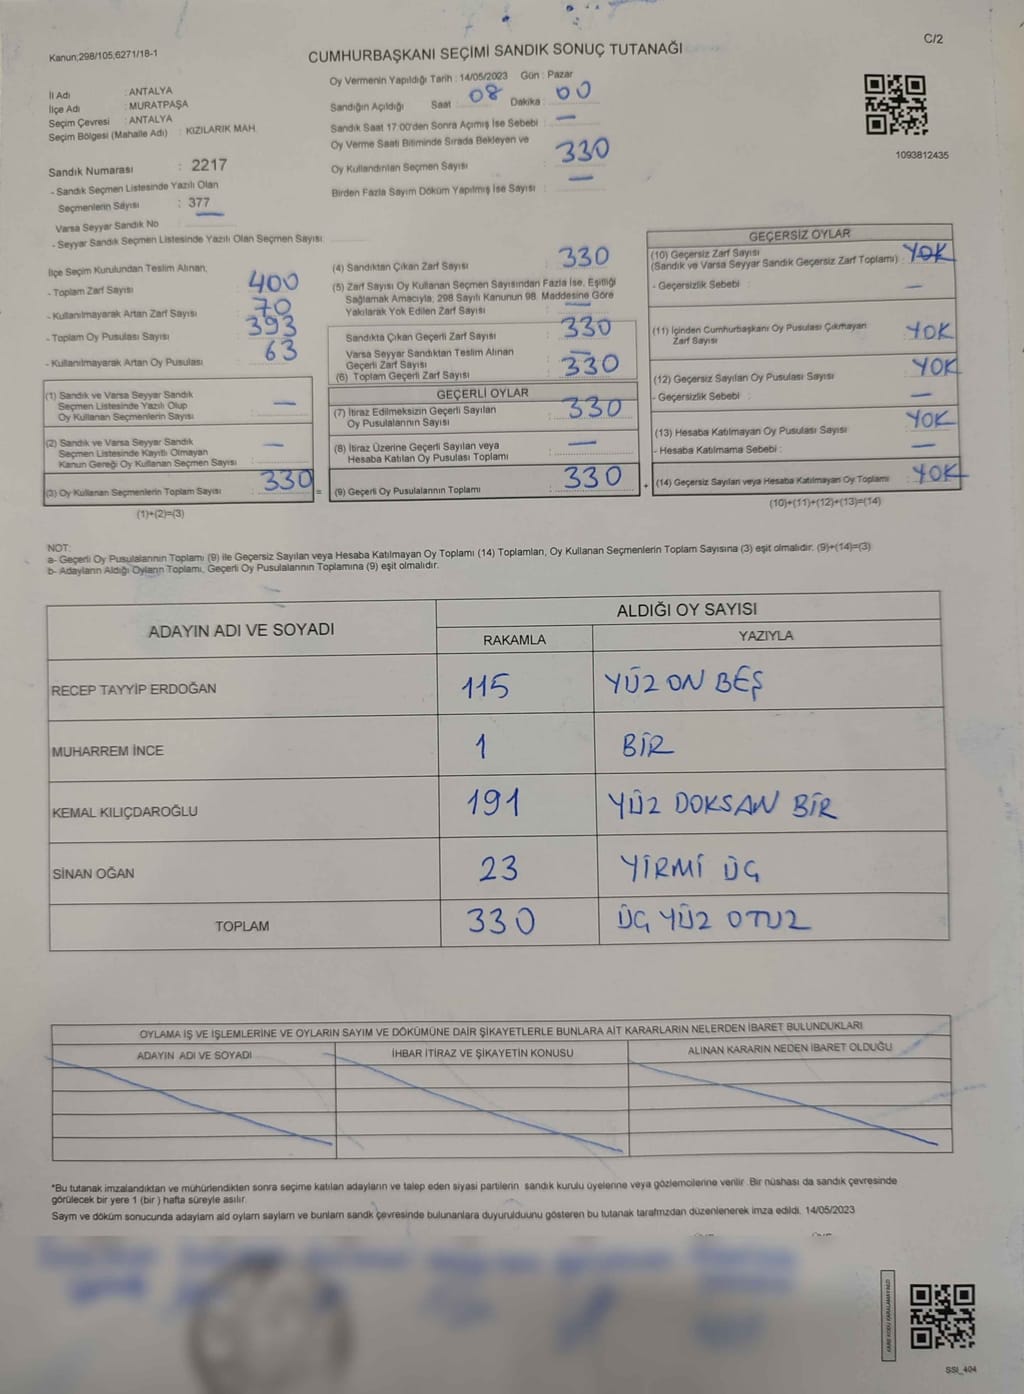 C/2
Kanun;298/105;6271/18-1
CUMHURBAŞKANI SEÇİMİ SANDIK SONUÇ TUTANAĞI
İl Adı : ANTALYA
İlçe Adı : MURATPAŞA
Seçim Çevresi : ANTALYA
Seçim Bölgesi (Mahalle Adı) : KIZILARIK MAH.
Sandık Numarası : 2217
- Sandık Seçmen Listesinde Yazılı Olan
Seçmenlerin Sayısı : 377
Varsa Seyyar Sandık No
- Seyyar Sandık Seçmen Listesinde Yazılı Olan Seçmen Sayısı:
Oy Vermenin Yapıldığı Tarih : 14/05/2023 Gün : Pazar
Sandığın Açıldığı Saat 08 Dakika : 00
Sandık Saat 17:00'den Sonra Açımış İse Sebebi : —
Oy Verme Saati Bitiminde Sırada Bekleyen ve
Oy Kullandırılan Seçmen Sayısı : 330
Birden Fazla Sayım Döküm Yapılmış İse Sayısı : —
1093812435
İlçe Seçim Kurulundan Teslim Alınan;
- Toplam Zarf Sayısı : 400
- Kullanılmayarak Artan Zarf Sayısı : 70
- Toplam Oy Pusulası Sayısı : 393
- Kullanılmayarak Artan Oy Pusulası : 63
(1) Sandık ve Varsa Seyyar Sandık
Seçmen Listesinde Yazılı Olup
Oy Kullanan Seçmenlerin Sayısı : —
(2) Sandık ve Varsa Seyyar Sandık
Seçmen Listesinde Kayıtlı Olmayan
Kanun Gereği Oy Kullanan Seçmen Sayısı : —
(3) Oy Kullanan Seçmenlerin Toplam Sayısı : 330 =
(1)+(2)=(3)
(4) Sandıktan Çıkan Zarf Sayısı : 330
(5) Zarf Sayısı Oy Kullanan Seçmen Sayısından Fazla İse, Eşitliği
Sağlamak Amacıyla, 298 Sayılı Kanunun 98. Maddesine Göre
Yakılarak Yok Edilen Zarf Sayısı : —
Sandıkta Çıkan Geçerli Zarf Sayısı : 330
Varsa Seyyar Sandıktan Teslim Alınan
Geçerli Zarf Sayısı : —
(6) Toplam Geçerli Zarf Sayısı : 330
GEÇERLİ OYLAR
(7) İtiraz Edilmeksizin Geçerli Sayılan
Oy Pusulalarının Sayısı : 330
(8) İtiraz Üzerine Geçerli Sayılan veya
Hesaba Katılan Oy Pusulası Toplamı : —
(9) Geçerli Oy Pusulalarının Toplamı : 330 +
GEÇERSİZ OYLAR
(10) Geçersiz Zarf Sayısı
(Sandık ve Varsa Seyyar Sandık Geçersiz Zarf Toplamı) : YOK
- Geçersizlik Sebebi : —
(11) İçinden Cumhurbaşkanı Oy Pusulası Çıkmayan
Zarf Sayısı : YOK
(12) Geçersiz Sayılan Oy Pusulası Sayısı : YOK
- Geçersizlik Sebebi : —
(13) Hesaba Katılmayan Oy Pusulası Sayısı : YOK
- Hesaba Katılmama Sebebi : —
(14) Geçersiz Sayılan veya Hesaba Katılmayan Oy Toplamı : YOK
(10)+(11)+(12)+(13)=(14)
NOT:
a- Geçerli Oy Pusulalarının Toplamı (9) ile Geçersiz Sayılan veya Hesaba Katılmayan Oy Toplamı (14) Toplamları, Oy Kullanan Seçmenlerin Toplam Sayısına (3) eşit olmalıdır. (9)+(14)=(3)
b- Adayların Aldığı Oyların Toplamı, Geçerli Oy Pusulalarının Toplamına (9) eşit olmalıdır.
ADAYIN ADI VE SOYADI ALDIĞI OY SAYISI
RAKAMLA YAZIYLA
RECEP TAYYİP ERDOĞAN 115 YÜZ ON BEŞ
MUHARREM İNCE 1 BİR
KEMAL KILIÇDAROĞLU 191 YÜZ DOKSAN BİR
SİNAN OĞAN 23 YİRMİ ÜÇ
TOPLAM 330 ÜÇ YÜZ OTUZ
OYLAMA İŞ VE İŞLEMLERİNE VE OYLARIN SAYIM VE DÖKÜMÜNE DAİR ŞİKAYETLERLE BUNLARA AİT KARARLARIN NELERDEN İBARET BULUNDUKLARI
ADAYIN ADI VE SOYADI İHBAR İTİRAZ VE ŞİKAYETİN KONUSU ALINAN KARARIN NEDEN İBARET OLDUĞU
*Bu tutanak imzalandıktan ve mühürlendikten sonra seçime katılan adayların ve talep eden siyasi partilerin sandık kurulu üyelerine veya gözlemcilerine verilir. Bir nüshası da sandık çevresinde
görülecek bir yere 1 (bir) hafta süreyle asılır.
Sayım ve döküm sonucunda adayların ald oyların sayların ve bunların sandk çevresinde bulunanlara duyurulduunu gösteren bu tutanak tarafmzdan düzenlenerek imza edildi. 14/05/2023
KARE KODU KARALAMAYINIZ!
SSI_404